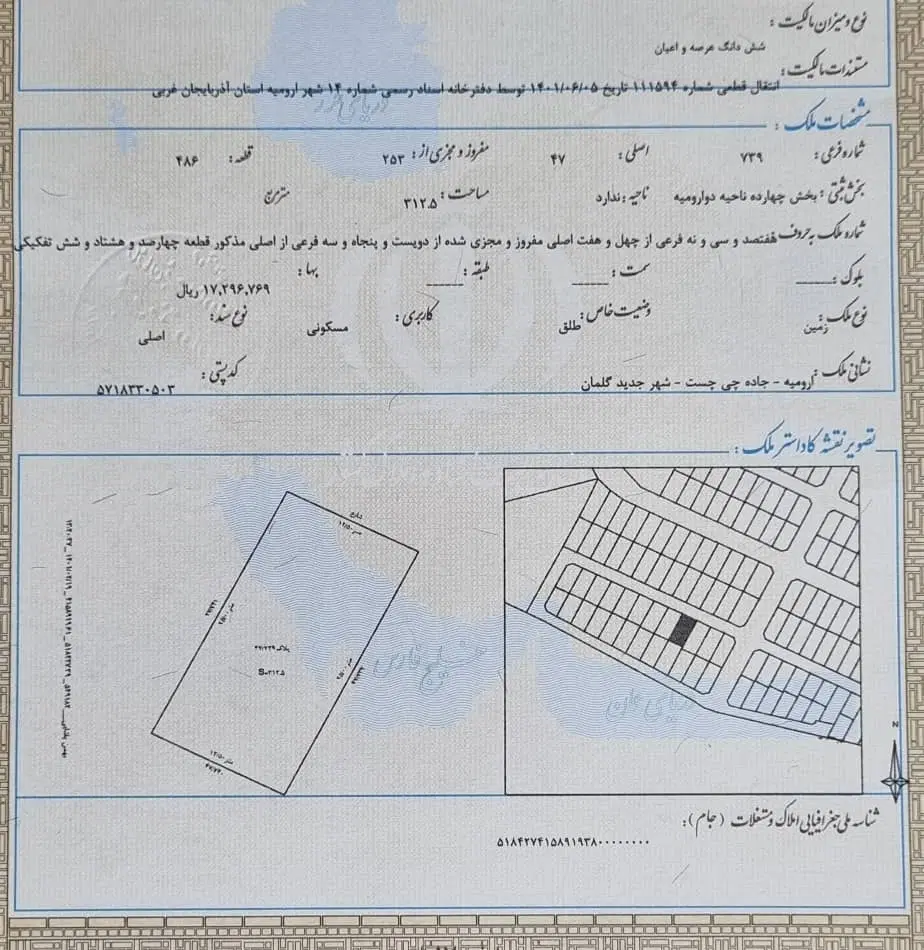 نوع و میزان مالکیت :
شش دانگ عرصه و اعیان
مستندات مالکیت :
انتقال قطعی شماره ۱۱۱۵۹۴ تاریخ ۱۴۰۱/۰۶/۰۵ توسط دفترخانه اسناد رسمی شماره ۱۴ شهر ارومیه استان آذربایجان غربی
مشخصات ملک :
شماره فرعی : ۷۳۹ اصلی : ۴۷ مفروز و مجزی از : ۲۵۳ قطعه : ۴۸۶
بخش ثبتی : بخش چهارده ناحیه دوارومیه ناحیه : ندارد مساحت : ۳۱۲.۵ مترمربع
شماره ملک به حروف : هفتصد و سی و نه فرعی از چهل و هفت اصلی مفروز و مجزی شده از دویست و پنجاه و سه فرعی از اصلی مذکور قطعه چهارصد و هشتاد و شش تفکیکی
بلوک : سمت : طبقه : بها : ۱۷,۲۹۶,۷۶۹ ریال
نوع ملک : زمین وضعیت خاص : طلق کاربری : مسکونی نوع سند : اصلی
نشانی ملک : ارومیه - جاده چی چست - شهر جدید گلمان کدپستی : ۵۷۱۸۳۳۰۵۰۳
تصویر نقشه کاداستر ملک :
شارع
۱۲/۵۰ متر
متر ۲۵/۰۰
پلاک ۴۷/۷۳۹
S=۳۱۲.۵
متر ۲۵/۰۰
متر ۱۲/۵۰
۴۷/۷۴۰
خلیج فارس
دریای عمان
N
شناسه ملی جغرافیایی املاک و مستغلات (جام) :
۵۱۸۴۲۷۴۱۵۸۹۱۹۳۸۰۰۰۰۰۰۰۰